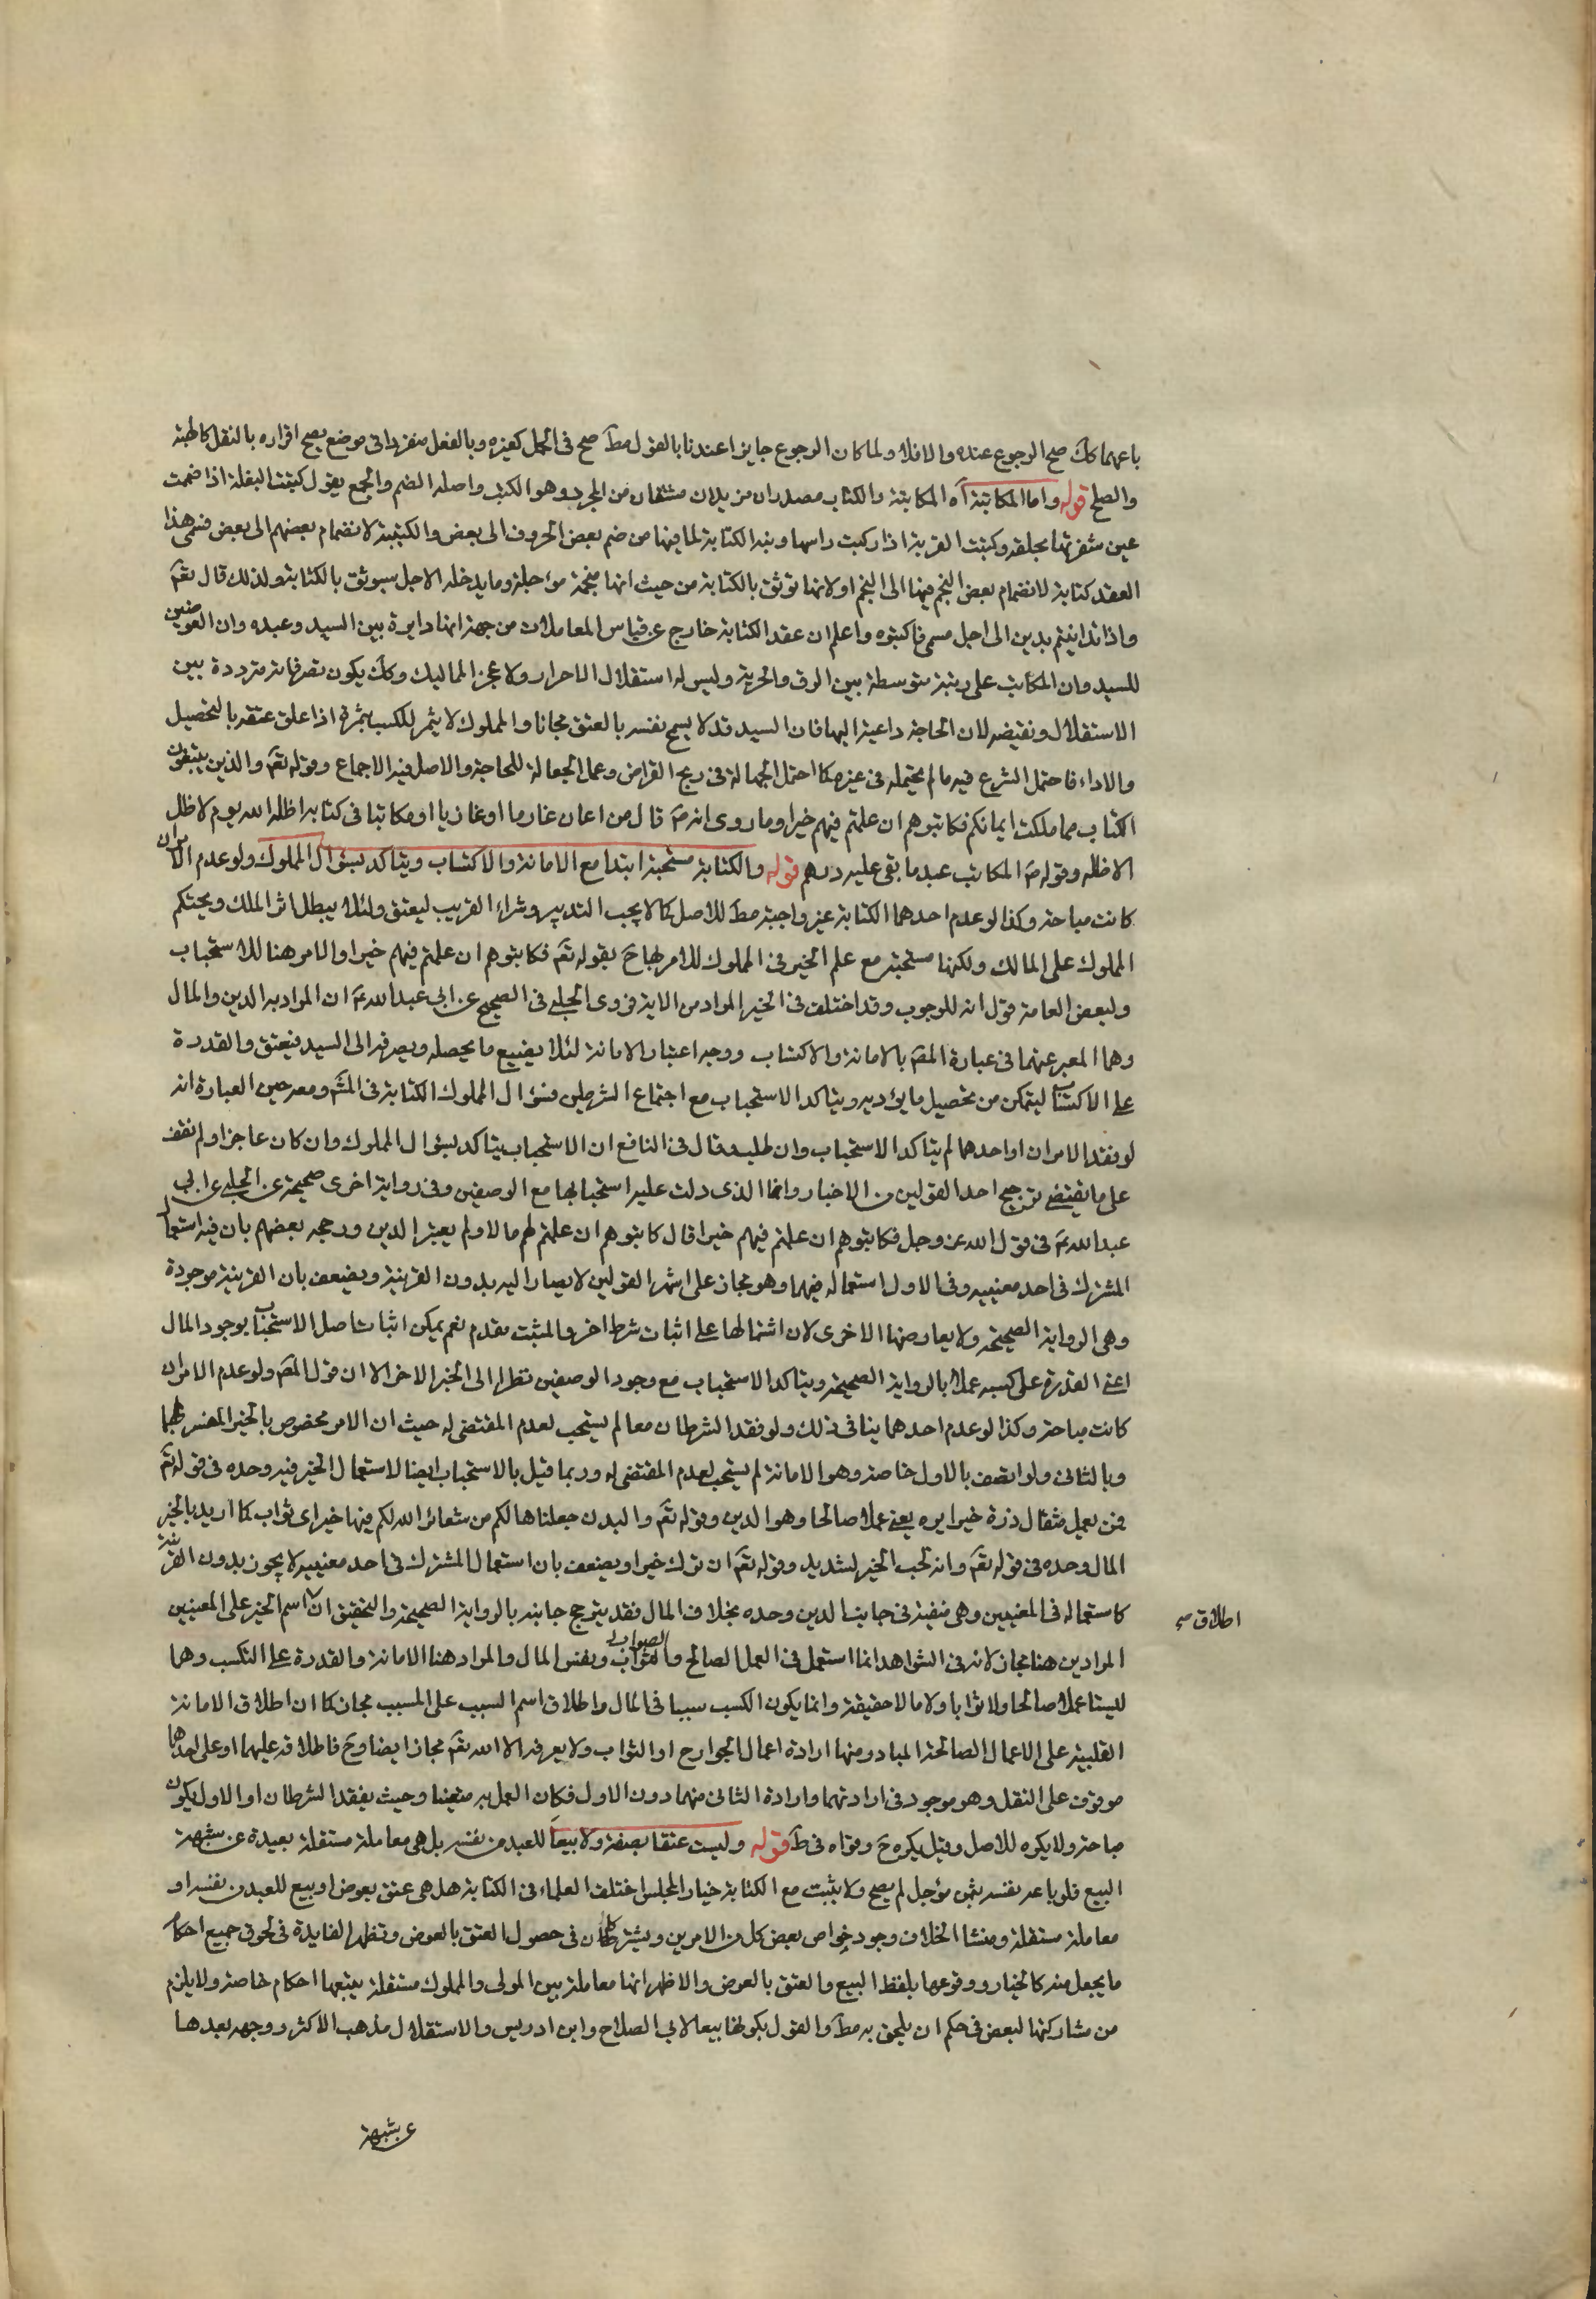 باعهما كك صح الرجوع عنده والا فلا ولما كان الرجوع جايزا عندنا بالقول مط صح في الحمل كغيره وبالفعل منفردا في موضع يصح افراده بالنقل كالهبة
والصلح قوله واما المكاتبة آه المكاتبة والكتاب مصدران مزيدان مشتقان من المجرد وهو الكتب واصله الضم والجمع يقول كتبت البغلة اذا ضممت
عين شفرتها بحلقه وكتبت القربة اذا ركبت راسها ومنه الكتابة لما فيها من ضم بعض الحروف الى بعض والكتيبة لانضمام بعضهم الى بعض فسمى هذا
العقد كتابة لانضمام بعض النجم فيها الى النجم او لانها توثق بالكتابة من حيث انها منجمة مؤجلة وما يدخله الاجل يستوثق بالكتابة ولذلك قال تعم
واذا تداينتم بدين الى اجل مسمى فاكتبوه واعلم ان عقد الكتابة خارج عن قياس المعاملات من جهة انها دايرة بين السيد وعبده وان العوضين
للسيد وان المكاتب على رتبة متوسطة بين الرق والحرية وليس له استقلال الاحرار ولا عجز المماليك وكك يكون تصرفاته مترددة بين
الاستقلال ونقيضه لان الحاجة داعية اليها فان السيد قد لا يسمح نفسه بالعتق مجانا والمملوك لا يثمر للكسب ثمرة اذا علق عتقه بالتحصيل
والاداء فاحتمل الشرع فيه ما لم يحتمله في غيره كما احتمل الجهالة في ربح القراض وعمل الجعالة للحاجة والاصل فيه الاجماع وقوله تعم والذين يبتغون
الكتاب مما ملكت ايمانكم فكاتبوهم ان علمتم فيهم خيرا وما روى انه ص قال من اعان غارما او غازيا او مكاتبا في كتابه اظله الله يوم لا ظل
الا ظله وقوله ص المكاتب عبد ما بقى عليه درهم قوله والكتابة مستحبة ابتدا مع الامانة والاكتساب ويتاكد بسؤال المملوك ولو عدم الامران
كانت مباحة وكذا لو عدم احدهما الكتابة غير واجبة مط للاصل كما لا يجب التدبير وشراء القريب ليعتق ولئلا يبطل اثر الملك ويحتكم
المملوك على المالك ولكنها مستحبة مع علم الخير في المملوك للامر بها ح بقوله تعم فكاتبوهم ان علمتم فيهم خيرا والامر هنا للاستحباب
ولبعض العامة قول انه للوجوب وقد اختلف في الخير المراد من الاية فروى الحلبي في الصحيح عن ابي عبد الله ع ان المراد به الدين والمال
وهما المعبر عنهما في عبارة المص بالامانة والاكتساب ووجه اعتبار الامانة لئلا يضيع ما يحصله ويصرفه الى السيد فيعتق والقدرة
على الاكتساب ليتمكن من تحصيل ما يؤديه ويتاكد الاستحباب مع اجتماع الشرطين فسؤال المملوك الكتابة في المش ومعرحين العبارة انه
لو فقد الامران او احدهما لم يتاكد الاستحباب وان طلبه وقال في النافع ان الاستحباب يتاكد بسؤال المملوك وان كان عاجزا ولم نقف
على ما يقتضي ترجيح احد القولين من الاخبار وانما الذى دلت عليه استحبابها مع الوصفين وفي رواية اخرى صحيحة عن الحلبي عن ابي
عبد الله ع في قول الله عز وجل فكاتبوهم ان علمتم فيهم خيرا قال كاتبوهم ان علمتم لهم مالا ولم يعتبر الدين ورجحه بعضهم بان فيه استعمال
المشترك في احد معنييه وفي الاول استعماله فيهما وهو مجاز على اشهر القولين لا يصار اليه بدون القرينة ويضعف بان القرينة موجودة
وهي الرواية الصحيحة ولا يعارضها الاخرى لان اشتمالها على اثبات شرط اخر والمثبت مقدم نعم يمكن اثبات اصل الاستحباب بوجود المال
اعني القدرة على كسبه عملا بالرواية الصحيحة ويتاكد الاستحباب مع وجود الوصفين نظرا الى الخبر الاخر الا ان قول المص ولو عدم الامران
كانت مباحة وكذا لو عدم احدهما ينافي ذلك ولو فقد الشرطان معا لم يستحب لعدم المقتضي له حيث ان الامر مخصوص بالخير المفسر بهما
وبالثاني ولو اتصف بالاول خاصة وهو الامانة لم يستحب لعدم المقتضى له وربما قيل بالاستحباب ايضا لاستعمال الخير فيه وحده في قوله تعم
فمن يعمل مثقال ذرة خيرا يره يعني عملا صالحا وهو الدين وقوله تعم والبدن جعلناها لكم من شعائر الله لكم فيها خير اى ثواب كما اريد بالخير
المال وحده في قوله تعم وانه لحب الخير لشديد وقوله تعم ان ترك خيرا ويضعف بان استعمال المشترك في احد معنييه لا يجوز بدون القرينة
كاستعماله في المعنيين وهي منفية في جانب الدين وحده بخلاف المال فقد يترجح جانبه بالرواية الصحيحة والتحقيق ان اسم الخير على المعنيين
اطلاق صح
المرادين هنا مجاز لانه في الشواهد انما استعمل في العمل الصالح والثواب ونفس المال والمراد هنا الامانة والقدرة على التكسب وهما
ليستا عملا صالحا ولا ثوابا ولا مالا حقيقة وانما يكون الكسب سببا في المال واطلاق اسم السبب على المسبب مجاز كما ان اطلاق الامانة
القلبية على الاعمال الصالحة المبادر منها ارادة اعمال الجوارح او الثواب ولا يعرفه الا الله تعم مجاز ايضا وح فاطلاقه عليهما او على احدهما
موقوف على النقل وهو موجود في ارادتهما وارادة الثاني منهما دون الاول فكان العمل به متعينا وحيث يفقد الشرطان او الاول يكون
مباحة ولا يكره للاصل وقيل يكره ح وقواه في ط قوله وليست عتقا بصفة ولا بيعا للعبد من نفسه بل هي معاملة مستقلة بعيدة عن شبهة
البيع فلو باعه نفسه بثمن مؤجل لم يصح ولا يثبت مع الكتابة خيار المجلس اختلف العلماء في الكتابة هل هي عتق بعوض او بيع للعبد من نفسه او
معاملة مستقلة ومنشا الخلاف وجود خواص بعض كل من الامرين ويشتركان في حصول العتق بالعوض وتظهر الفايدة في لحوق جميع احكام
ما يجعل منه كالخيار ووقوعها بلفظ البيع والعتق بالعوض والاظهر انها معاملة بين المولى والمملوك مستقلة يتبعها احكام خاصة ولا يلزم
من مشاركتها لبعض في حكم ان يلحق به مط والقول بكونها بيعا لابي الصلاح وابن ادريس والاستقلال مذهب الاكثر ووجهه بعدها
عن شبهة